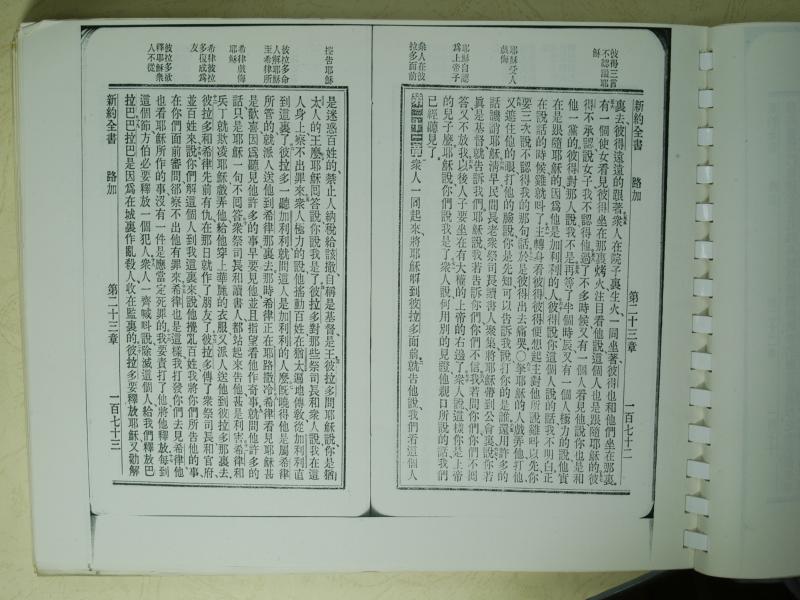 彼得三言不認耶穌
耶穌受人戲侮
耶穌自認為上帝子
眾人在彼拉多面前
新約全書 路加 第二十三章 一百七十二
裏去彼得遠遠的跟著眾人在院子裏生火一同坐著彼得也和他們坐在那裏
有一個使女看見彼得坐在那裏烤火注目看他說這個人也是跟隨耶穌的彼
得不承認說女子我不認得他過了不多時候又有一個人看見他說你也是和
他一黨的彼得對那人說我不是再等了半個時辰又有一個人極力的說他實
在是跟隨耶穌的因為他是加利利的人彼得說你這個人說的話我不明白正
在說話的時候雞就叫了主轉身看彼得彼得便想起主對他所說雞叫以先你
要三次說不認得我的那句話於是彼得出去痛哭○拿耶穌的人戲弄他打他
又遮住他的眼打他的臉說你是先知可以告訴我說打你的是誰還用許多的
話譏誚耶穌清早民間長老眾祭司長讀書人聚集將耶穌帶到公會裏說你若
真是基督就告訴我們耶穌說我若告訴你們你們不信我若問你們你們不回
答又不放我以後人子要坐在有大權的上帝的右邊了眾人說這樣你是上帝
的兒子麼耶穌說你們說我是了眾人說何用別的見證他親口所說的話我們
已經聽見了
第二十三章眾人一同起來將耶穌解到彼拉多面前就告他說我們看這個人
控告耶穌
彼拉多命人解耶穌至希律所
希律戲侮耶穌
希律彼拉多復成為友
彼拉多欲釋耶穌眾人不從
是迷惑百姓的禁止人納稅給該撒自稱是基督是王彼拉多問耶穌說你是猶
太人的王麼耶穌回答說你說我是了彼拉多對那些祭司長和眾人說我在這
人身上察不出罪來眾人極力的說他搖動百姓在猶太遍地傳教從加利利直
到這裏了彼拉多一聽加利利就問這人是加利利的人麼既曉得他是屬希律
所管的就派人送他到希律那裏去那時希律正在耶路撒冷希律看見耶穌甚
是歡喜因為聽見他許多的事早要見他並且指望看他作奇事就問他許多的
話只是耶穌一句不回答眾祭司長和讀書人都站起來告他甚是利害希律和
兵丁就欺凌耶穌戲弄他給他穿上華麗的衣服又派人送他到彼拉多那裏去
彼拉多和希律先前有仇在那日就作了朋友了彼拉多傳了眾祭司長和官府
並百姓來說你們解這個人到我這裏來說他攪亂百姓我將你們所告他的事
在你們面前審問卻察不出他有罪來希律也是這樣我打發你們去見希律他
也看耶穌所作的事沒有一件是應當定死罪的我要責打了他將他釋放每到
這個節方伯必要釋放一個犯人眾人一齊喊叫說除滅這個人給我們釋放巴
拉巴巴拉巴是因為在城裏作亂殺人收在監裏的彼拉多要釋放耶穌又勸解
新約全書 路加 第二十三章 一百七十三